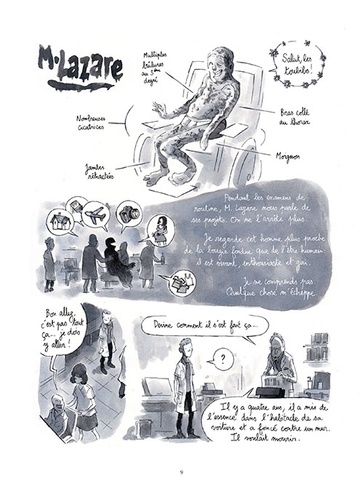 M. Lazare
Multiples
brûlures
au 3ème
degré
Salut, les
toubibs!
Nombreuses
cicatrices
Bras collé
au thorax
Jambes
rétractées
Moignon
Pendant les examens de
routine, M. Lazare nous parle de
ses projets. On ne l'arrête plus.
Je regarde cet homme, plus proche
de la bougie fondue que de l'être humain.
Il est vivant, enthousiaste et gai.
Je ne comprends pas.
Quelque chose m'échappe.
Bon allez,
c'est pas tout
ça... je dois
y aller!
Devine comment il s'est fait ça...
?
Il y a quatre ans, il a mis de
l'essence dans l'habitacle de sa
voiture et a foncé contre un mur.
Il voulait mourir.
9